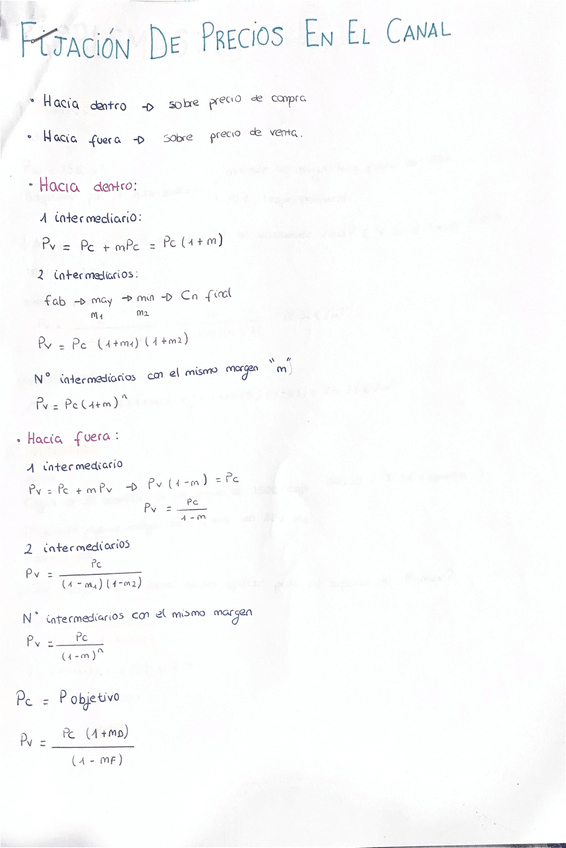 FIJACIÓN DE PRECIOS EN EL CANAL
• Hacia dentro → sobre precio de compra
• Hacia fuera → sobre precio de venta.
• Hacia dentro:
1 intermediario:
Pv = Pc + mPc = Pc (1+m)
2 intermediarios:
fab → may → min → Cn final
m1 m2
Pv = Pc (1+m1) (1+m2)
N° intermediarios con el mismo margen "m"
Pv = Pc (1+m)^n
• Hacia fuera:
1 intermediario
Pv = Pc + mPv → Pv (1-m) = Pc
Pv = Pc / 1-m
2 intermediarios
Pv = Pc / (1-m1) (1-m2)
N° intermediarios con el mismo margen
Pv = Pc / (1-m)^n
Pc = P objetivo
Pv = Pc (1+MD) / (1-MF)